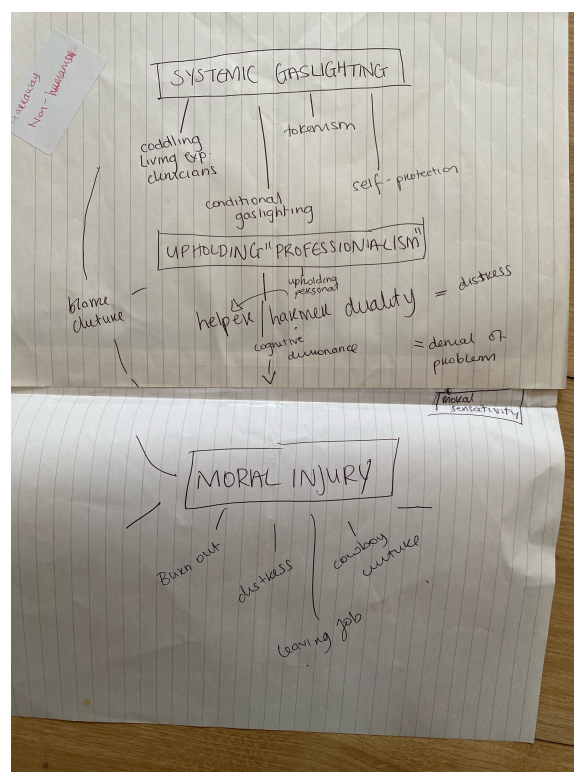 Harraway
Non-humanism
SYSTEMIC GASLIGHTING
coddling
Living exp.
clinicians
conditional
gaslighting
tokenism
self-protection
UPHOLDING "PROFESSIONIALISM"
upholding
personal
helper/harmer duality = distress
cognitive
dissonance
= denial of
problem
blame
culture
moral
sensativity
MORAL INJURY
Burn out
distress
leaving job
cowboy
culture